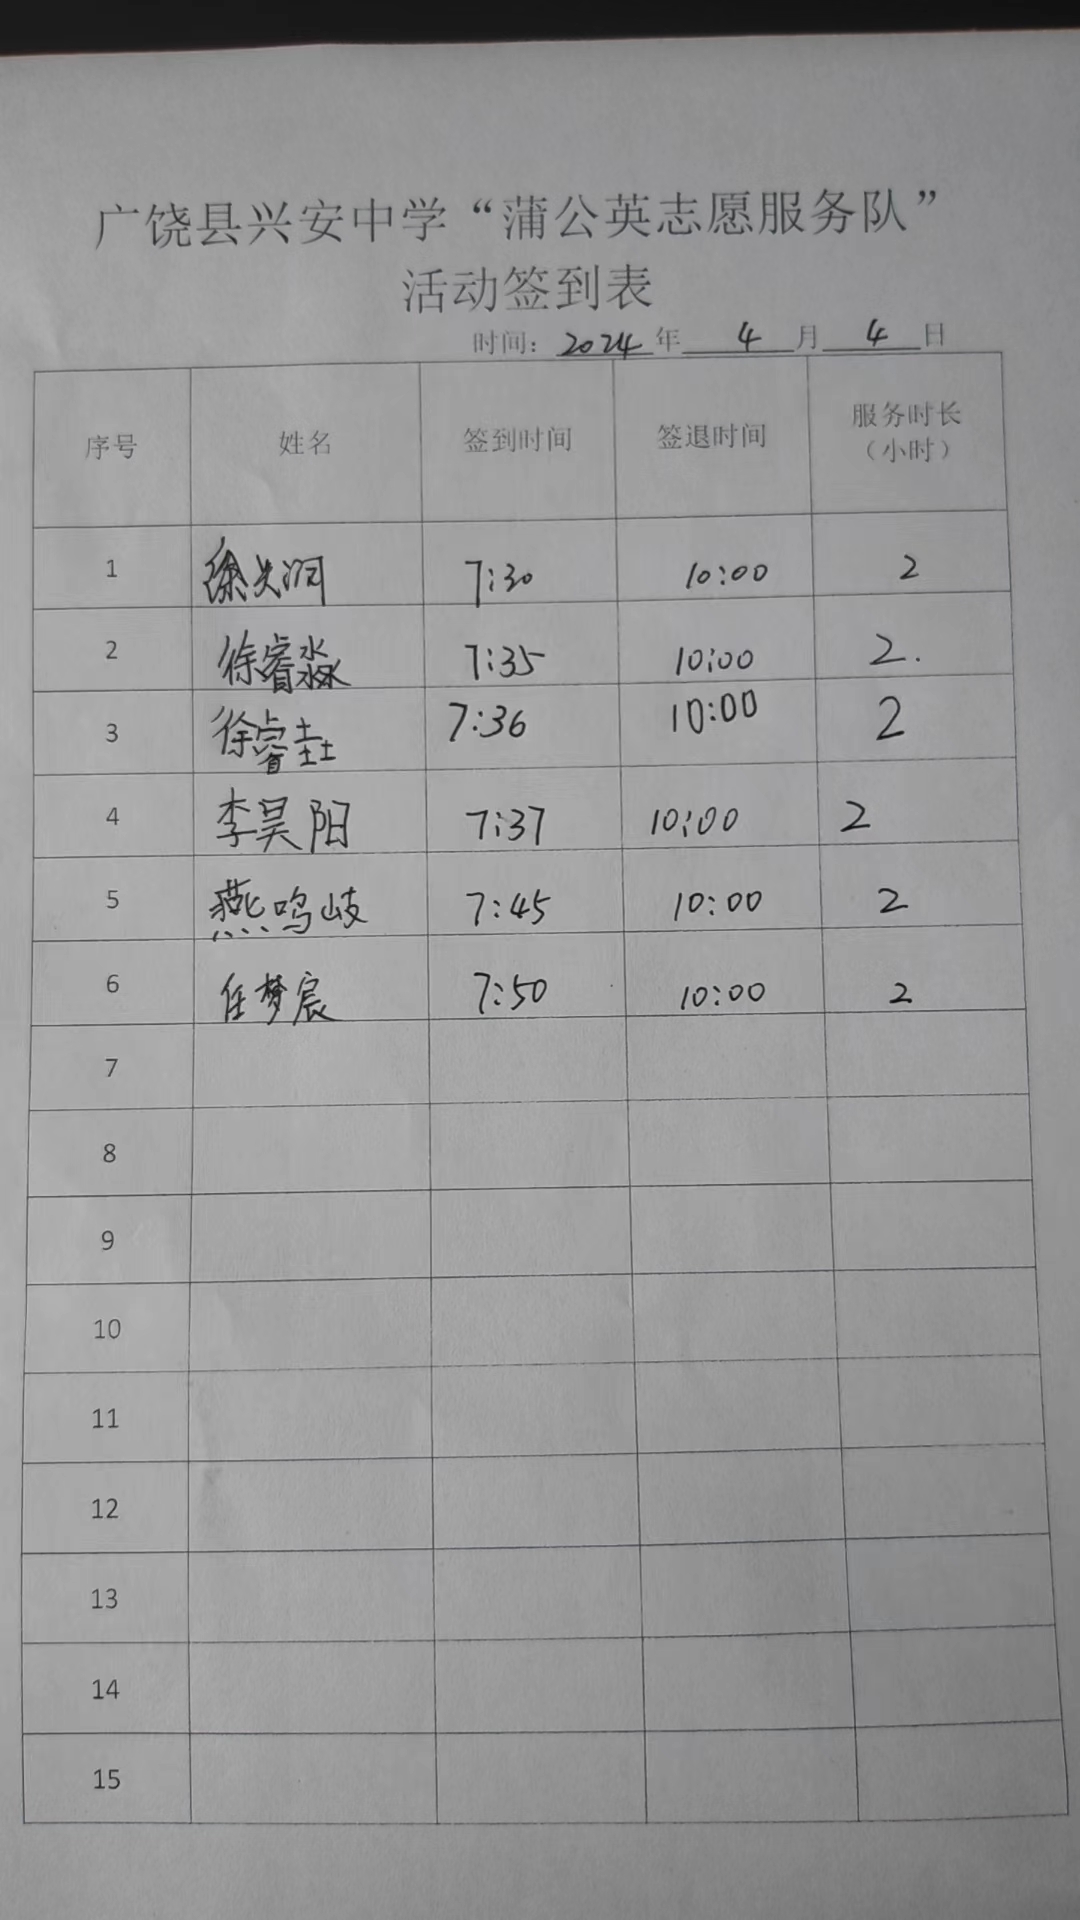 广饶县兴安中学“蒲公英志愿服务队”
活动签到表
时间：2024年 4 月 4 日
序号 姓名 签到时间 签退时间 服务时长（小时）
1 徐 7:30 10:00 2
2 徐睿淼 7:35 10:00 2.
3 徐睿垚 7:36 10:00 2
4 李昊阳 7:37 10:00 2
5 燕鸣岐 7:45 10:00 2
6 任梦宸 7:50 10:00 2
7
8
9
10
11
12
13
14
15